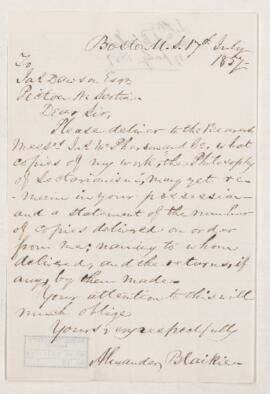 Boston U.S. 17th July
1857
To
Jas Dawson Esqr
Pictou N. Scotia
Dear Sir,
Please deliver to the
Messrs. Jas McPherson and Co, what
copies of my work, the Philosophy
of Sectarianism, may yet re-
main in your possession
and a statement of the number
of copies delivered on order
from me; naming to whom
delivered, and the returns, if
any, by them made.
Your attention to this will
much oblige
Yours, very respectfully
Alexander Blaikie